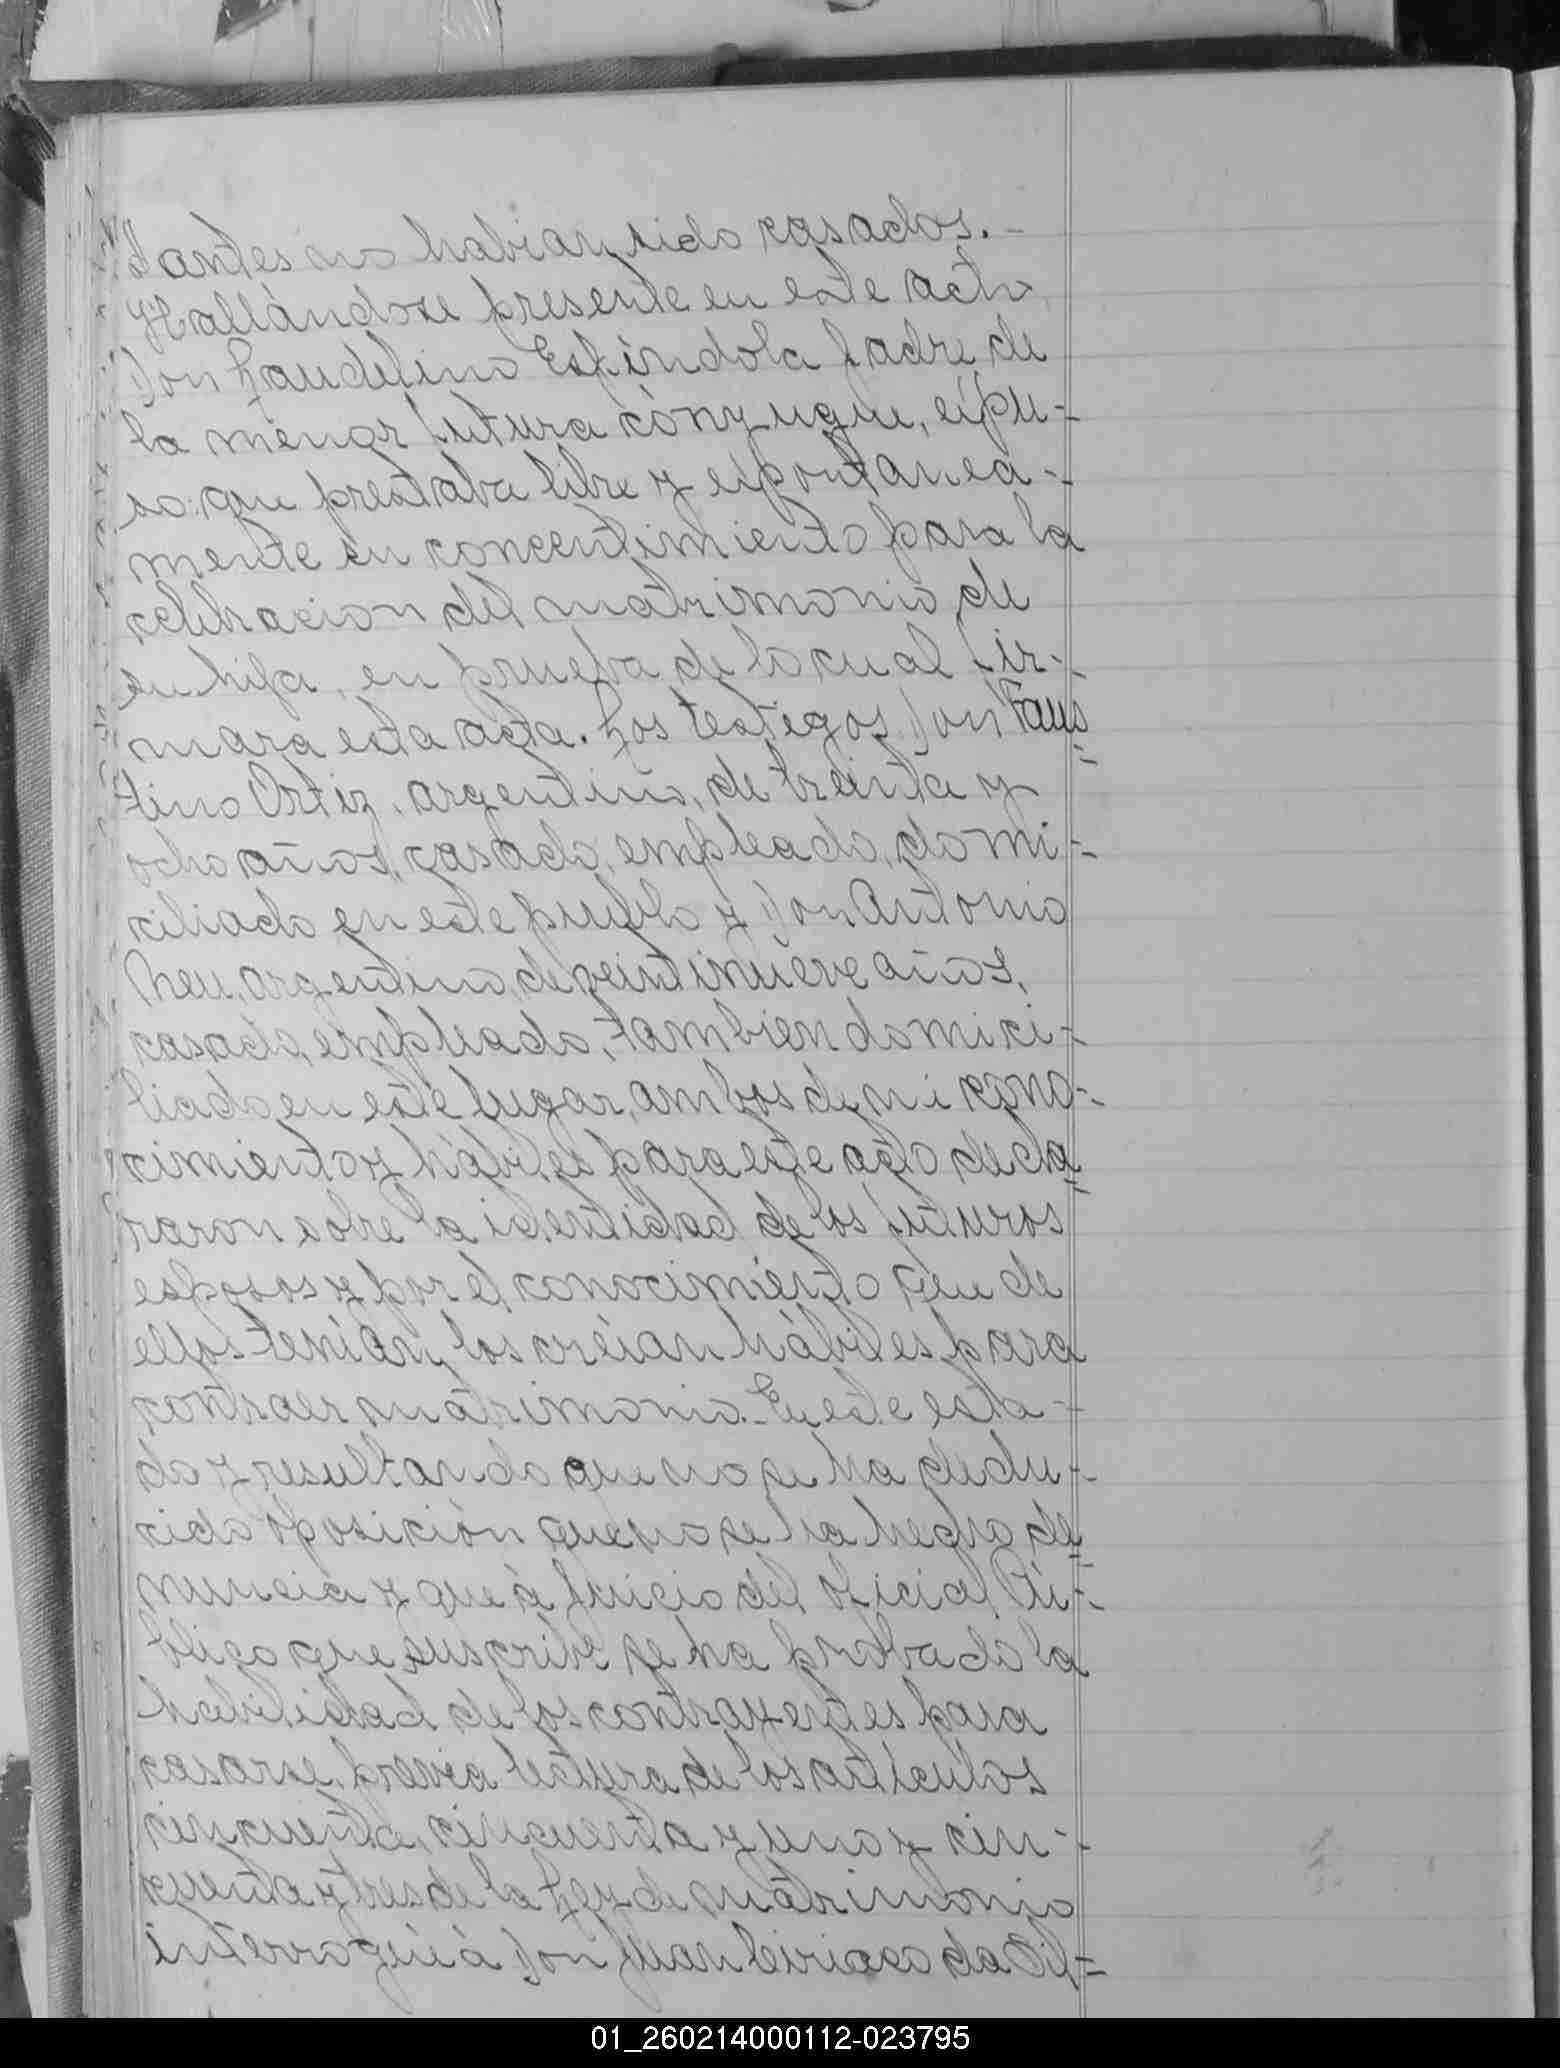 antes no habian sido casados.-
Hallándose presente en este acto
Don Laudelino Espíndola padre de
la menor futura cónyugue, espu-
so: que prestaba libre y espontanea-
mente su concentimiento para la
celebracion del matrimonio de
su hija, en prueba de lo cual fir-
mara esta acta. Los testigos Don Faus
tino Ortiz, argentino, de treinta y
ocho años, casado, empleado, domi-
ciliado en este pueblo y Don Antonio
argentino, de veintinueve años,
casado, empleado, tambien domici-
liado en este lugar, ambos de mi cono-
cimiento y hábiles para este acto decla
raron sobre la identidad de los futuros
esposos y por el conocimiento que de
ellos tenian, los créian hábiles para
contraer matrimonio.- En este esta-
do y resultando que no se ha dedu-
cido oposición que no se ha hecho de-
nuncia y que á juicio del oficial Pú-
blico que suscribe se ha probado la
habilidad de los contrayentes para
casarse, previa lectura de los artículos
cincuenta, cincuenta y uno y cin-
cuenta y tres de la Ley de matrimonio
interrogué á Don Juan Ciriaco da Sil-
01_260214000112-023795